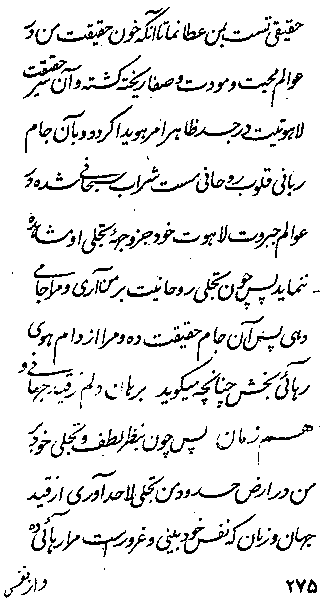 حقیقی تست بمن عطا نما تا آنکه خون حقیقت من در
عوالم محبت و مودت و صفا ریخته گشته و آن سر حقیقت
لاهوتیت در جسد ظاهر امر هویدا گردد و بآن جام
ربانی قلوب روحانی مست شراب سبحانی شده و در
عوالم جبروت لاهوت خود جز وجههٔ تجلی او مشاهده
ننماید پس چون تجلی روحانیت بر من آری و مرا جامی
دهی پس آن جام حقیقت ده و مرا از دام هوی
رهائی بخش چنانچه میگوید برهان دلم ز قید جهانی و
هم زمان پس چون نظر لطف و تجلی خود بر
من در ارض حدود من تجلی لاحد آوری از قید
جهان و زمان که نفس خود بینی و غرور است مرا رهائی ده
۲۷۵
و از نفس